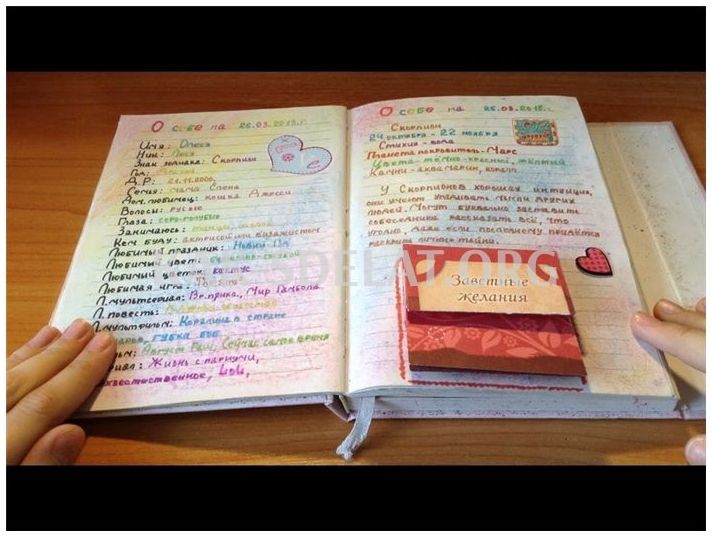 О себе на 26.03.2015г.
Имя: Олеся
Ник: Леся
Знак зодиака: Скорпион
Год:
Д.Р: 21.11.2000,
Семья: мама Елена
Дом. любимец: кошка Джесси
Волосы: русые
Глаза: серо-голубые
Занимаюсь: танцы,
Кем буду: актрисой или визажистом
Любимый праздник: Новый Год
Любимый цвет:
Любимый цветок: кактус
Любимая игра:
Л. мультсериал: Вр. прикл., Мир Гамбола
Л. повесть:
Л. мультфильм: Коралина в стране
кошмаров, губка боб
Август Раш, Сейчас самое время
Жизнь с парнями,
Сверхъестественное, LoLi,
О себе на 26.03.2015г.
Скорпион
24 октября - 22 ноября
Стихия - вода
Планета покровитель - Марс
Цвета - тёмно-красный, жёлтый
Камни - аквамарин, коралл
У Скорпионов хорошая интуиция,
они умеют угадывать мысли других
людей. Могут буквально заставить
собеседника рассказать всё, что
угодно, даже если последнему придётся
раскрыть личные тайны.
SDELAT.ORG
Заветные
желания